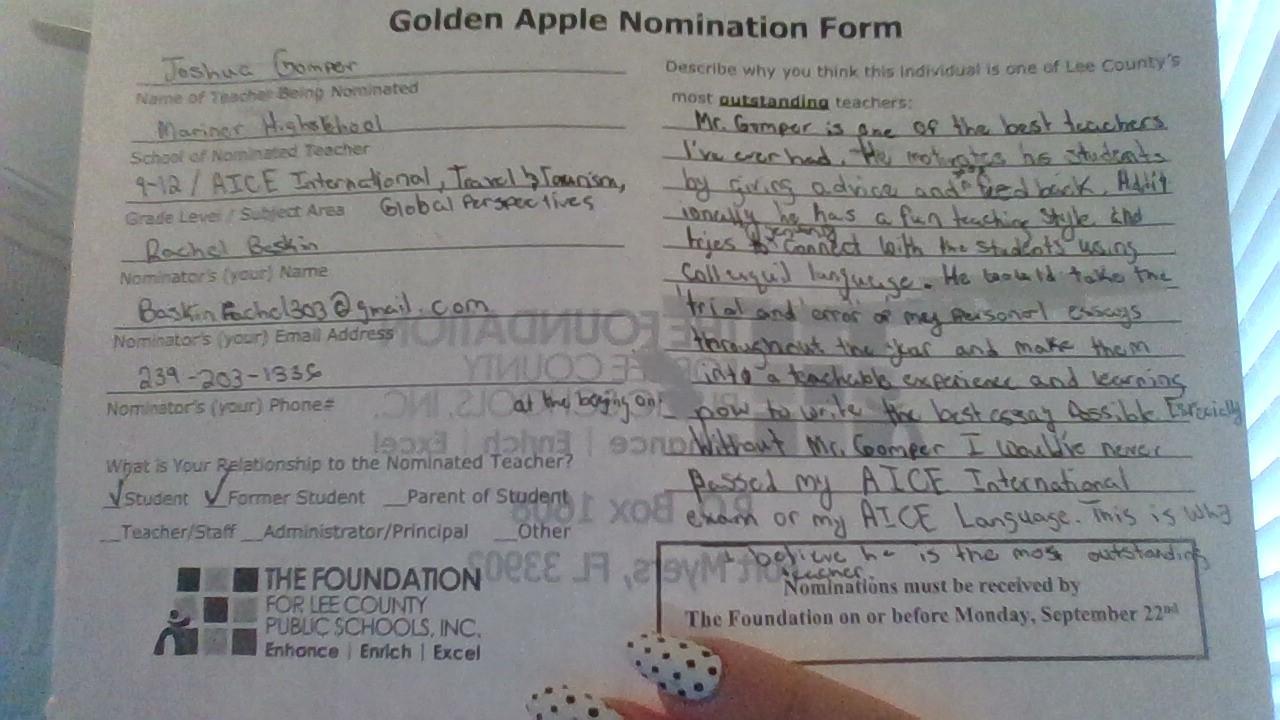 Golden Apple Nomination Form
Joshua Gomper
Name of Teacher Being Nominated
Mariner Highschool
School of Nominated Teacher
9-12 / AICE International, Travel & Tourism,
Grade Level / Subject Area Global Perspectives
Rachel Baskin
Nominator's (your) Name
BaskinRachel303@gmail.com
Nominator's (your) Email Address
239-203-1336
Nominator's (your) Phone#
What is Your Relationship to the Nominated Teacher?
✓Student ✓Former Student __Parent of Student
__Teacher/Staff __Administrator/Principal __Other
THE FOUNDATION
FOR LEE COUNTY
PUBLIC SCHOOLS, INC.
Enhance | Enrich | Excel
Describe why you think this individual is one of Lee County's
most outstanding teachers:
Mr. Gomper is one of the best teachers
I've ever had. He motivates his students
by giving advice and feedback. Addit
ionally he has a fun teaching style and
tries to connect with the students using
colloquil language. He would take the
trial and error of my personal essays
throughout the year and make them
into a teachable experience and learning
how to write the best essay possible. Especially
at the
Without Mr. Gomper I would've never
passed my AICE International
exam or my AICE Language. This is why
I believe he is the most outstanding
teacher.
Nominations must be received by
The Foundation on or before Monday, September 22nd